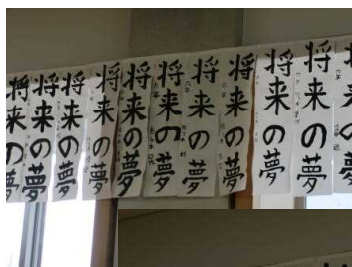 将来の夢
将来の夢
将来の夢
将来の夢
将来の夢
将来の夢
将来の夢
将来の夢
将来の夢
将来の夢